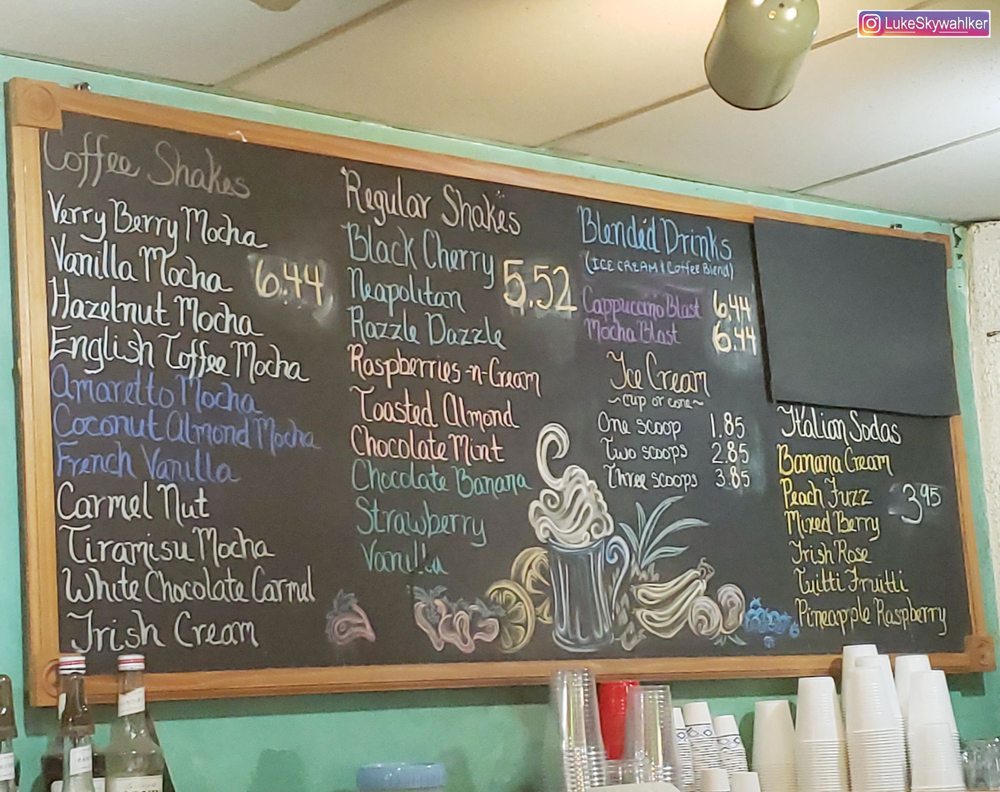 LukeSkywahlker
Coffee Shakes
Verry Berry Mocha
Vanilla Mocha
6.44
Hazelnut Mocha
English Toffee Mocha
Amaretto Mocha
Coconut Almond Mocha
French Vanilla
Carmel Nut
Tiramisu Mocha
White Chocolate Carmel
Irish Cream
Regular Shakes
Black Cherry
Neapolitan
5.52
Razzle Dazzle
Raspberries-n-Cream
Toasted Almond
Chocolate Mint
Chocolate Banana
Strawberry
Vanilla
Blended Drinks
(ICE CREAM & Coffee Blend)
Cappuccino Blast 6.44
Mocha Blast 6.44
Ice Cream
~cup or cone~
One scoop 1.85
Two scoops 2.85
Three scoops 3.85
Italian Sodas
Banana Cream
Peach Fuzz
3.95
Mixed Berry
Irish Rose
Tuitti Fruitti
Pineapple Raspberry